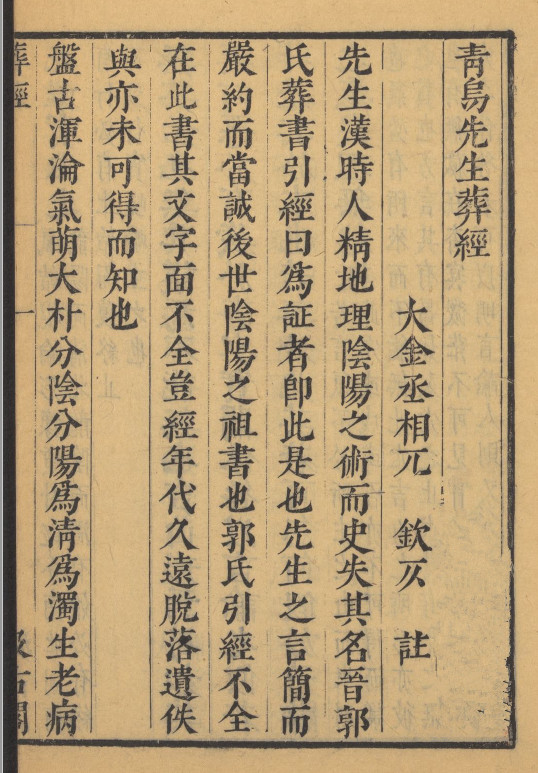 青烏先生葬經
大金丞相兀　欽仄　註
先生漢時人精地理陰陽之術而史失其名晉郭
氏葬書引經曰爲証者卽此是也先生之言簡而
嚴約而當誠後世陰陽之祖書也郭氏引經不全
在此書其文字面不全豈經年代久遠脫落遺佚
與亦未可得而知也
盤古渾淪氣萌大朴分陰分陽爲清爲濁生老病
葬經
一
汲古閣